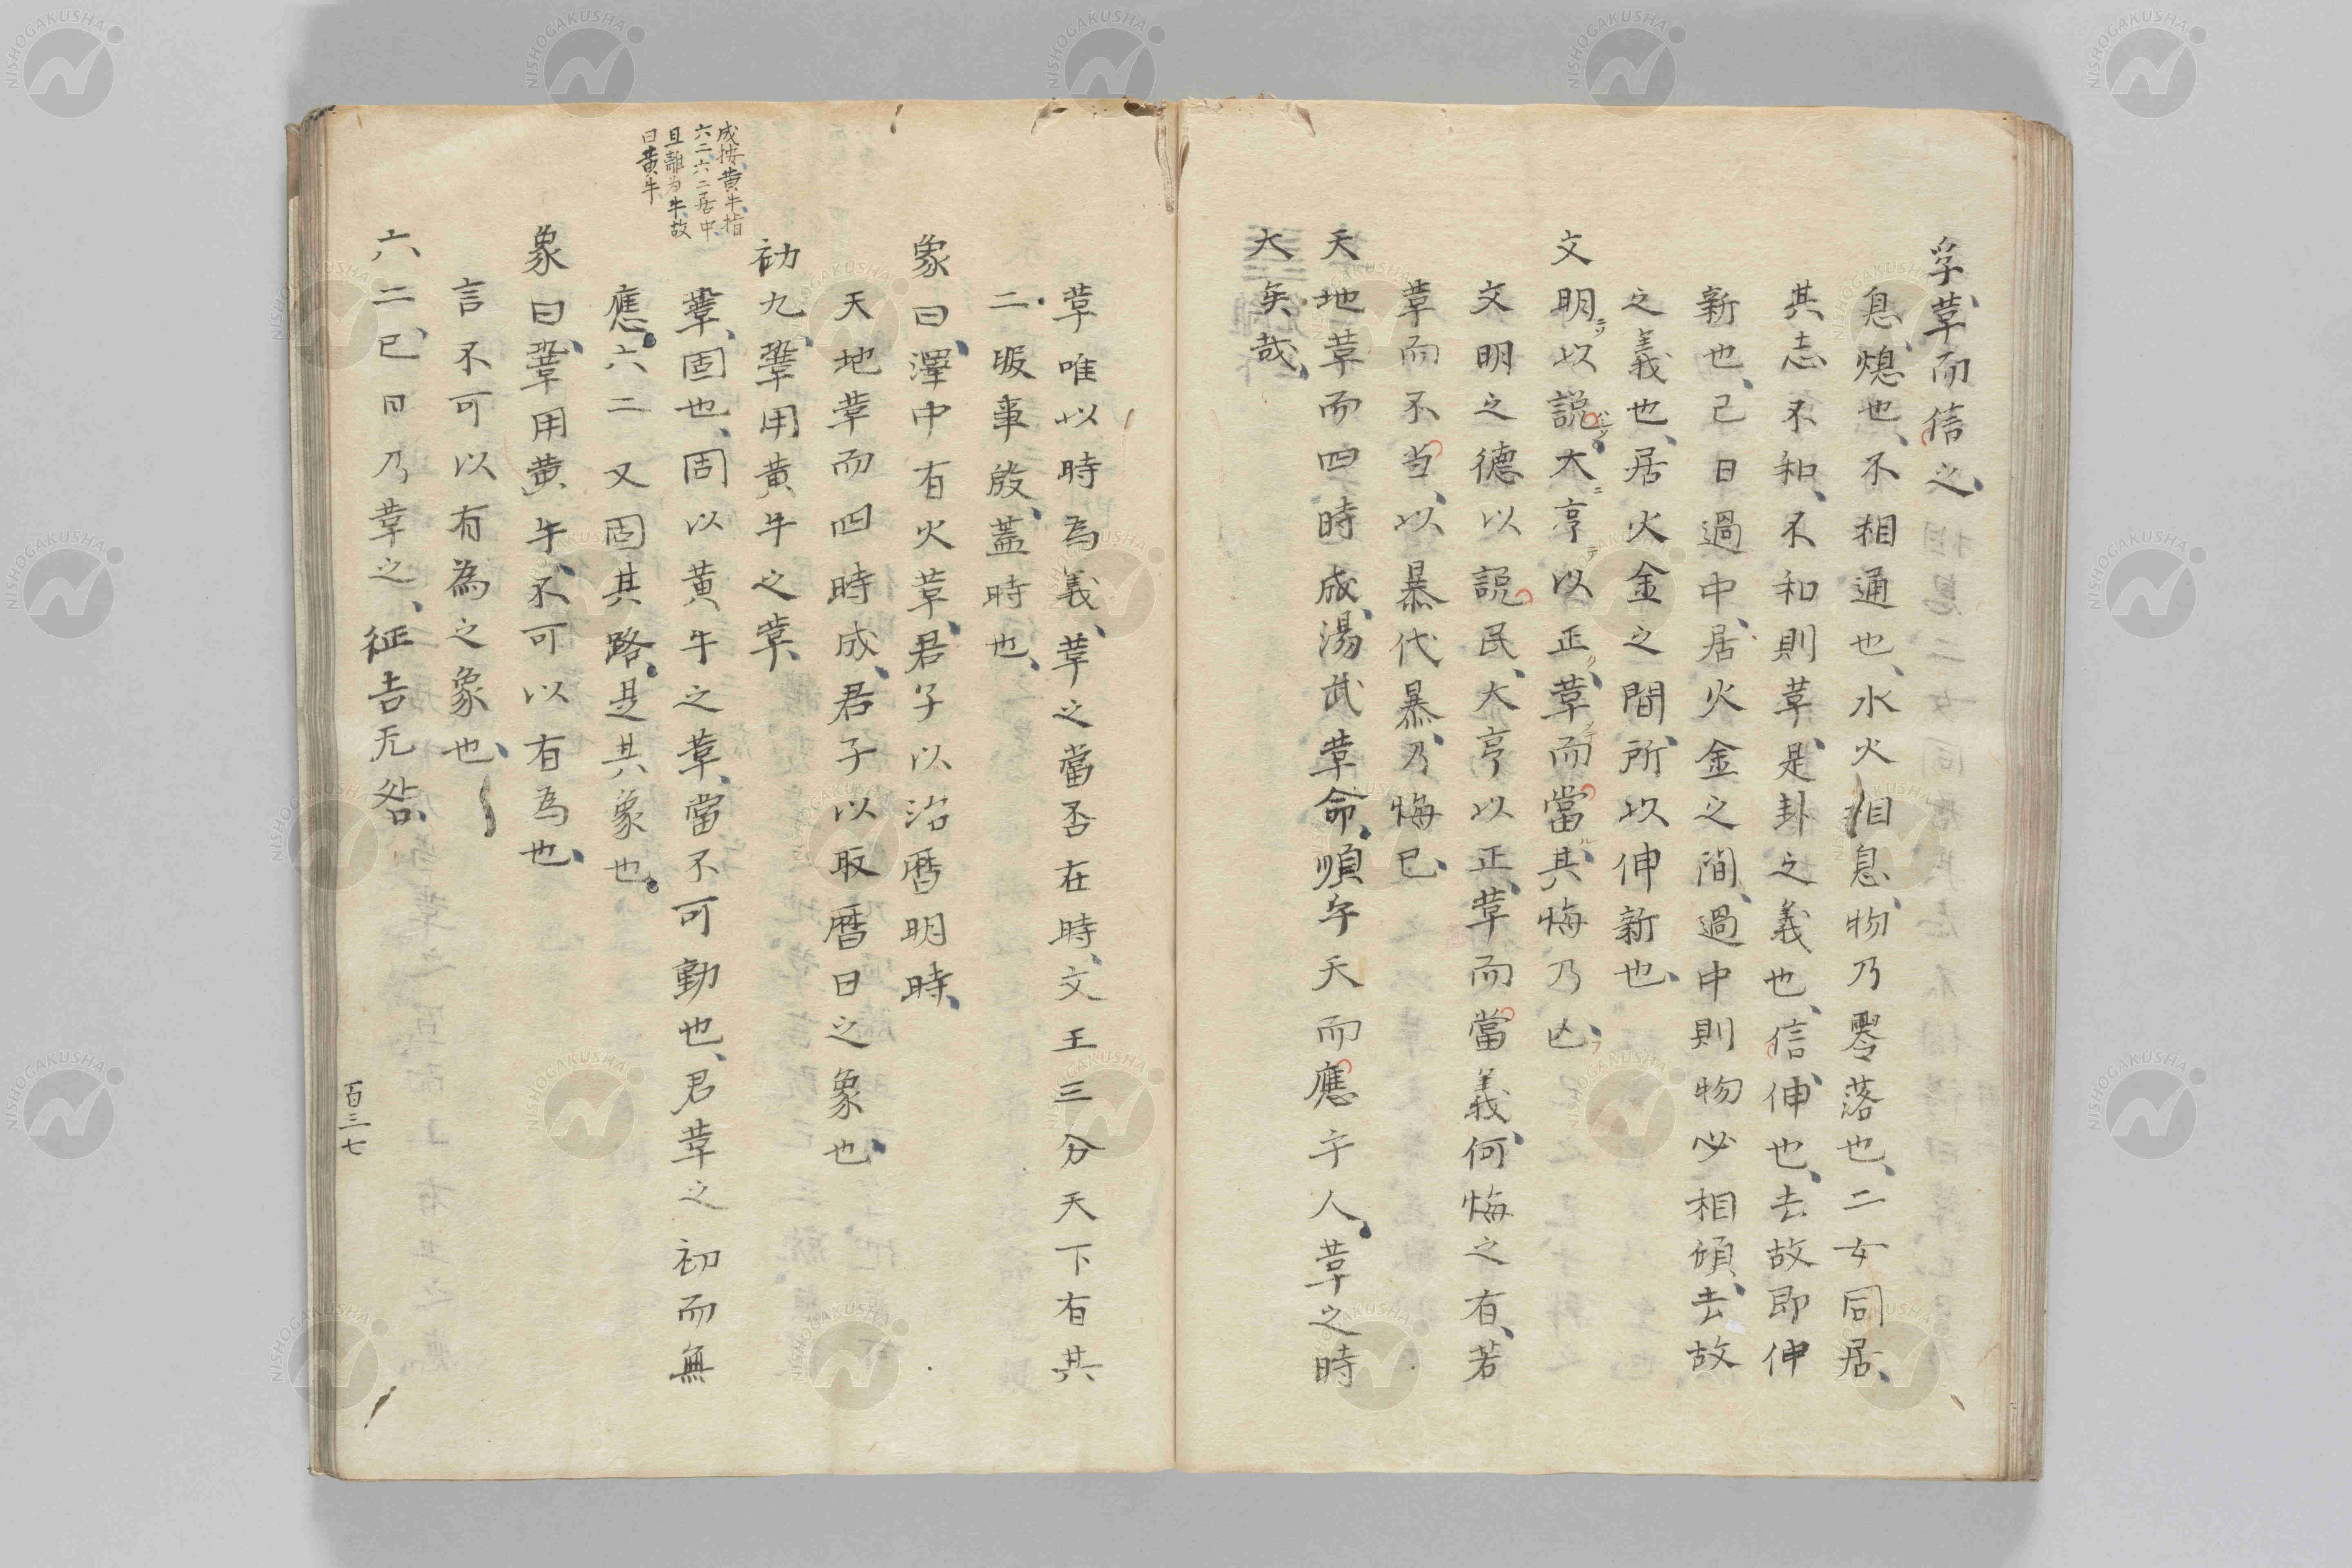 孚、革而信之、
息、熄也、不相通也、水火相息、物乃零落也、二女同居、
其志不和、不和則革、是卦之義也、信、伸也、去故即伸
新也、己日過中、居火金之間、過中則物必相傾、去故
之義也、居火金之間、所以伸新也、
文明以説、大亨以正、革而當、其悔乃亡、
文明之德以説民、大亨以正、革而當義、何悔之有、若
革而不当、以暴代暴、乃悔已、
天地革而四時成、湯武革命、順乎天而應乎人、革之時
大矣哉、
革唯以時為義、革之當否在時、文王三分天下有其
二、服事殷、蓋時也、
象曰、澤中有火革、君子以治暦明時、
天地革而四時成、君子以取暦日之象也、
初九、鞏用黄牛之革、
鞏、固也、固以黄牛之革、當不可動也、君革之初而無
應、六二又固其路、是其象也、
象曰、鞏用黄牛、不可以有為也、
言不可以有為之象也、
六二、已日乃革之、征吉无咎、
成按、黄牛、指
六二、六二居中、
且離為牛、故
曰黄牛
百三七
NISHOGAKUSHA